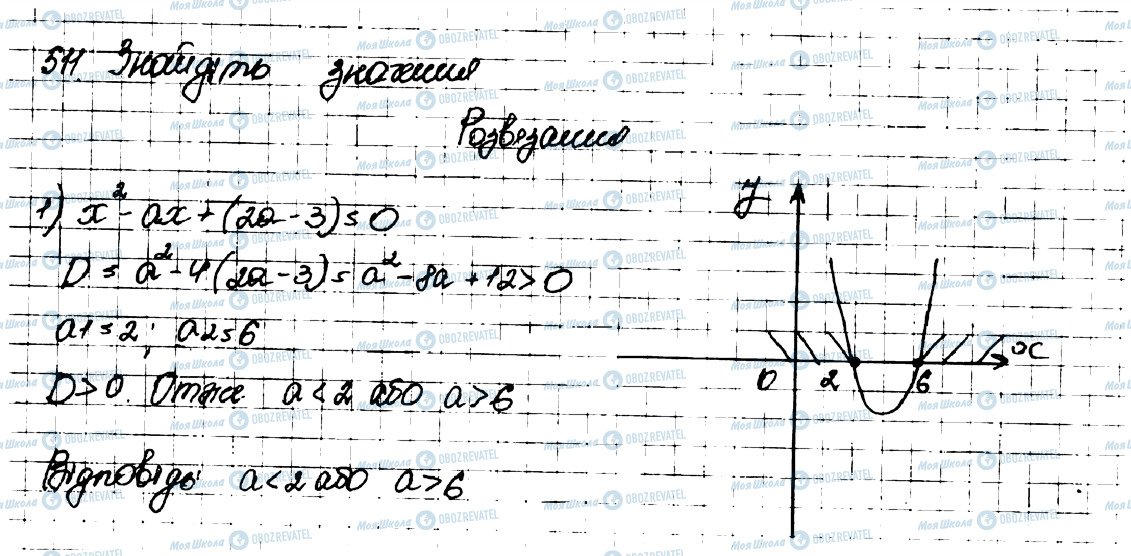 511. Знайдіть значення
Розвязання
1) x² - ax + (2a - 3) = 0
D = a² - 4(2a - 3) = a² - 8a + 12 > 0
a1 = 2; a2 = 6
D > 0. Отже a < 2 або a > 6
Відповідь: a < 2 або a > 6
y
x
0 2 6
Моя Школа OBOZREVATEL